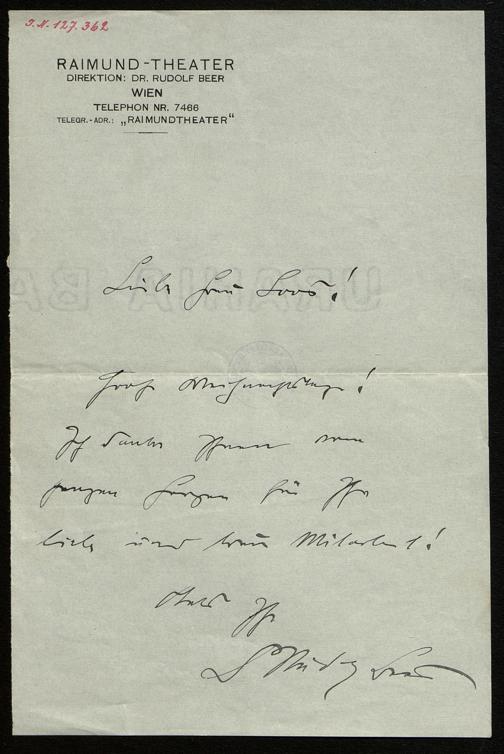 J.N. 127.362
RAIMUND-THEATER
DIREKTION: DR. RUDOLF BEER
WIEN
TELEPHON NR. 7466
TELEGR.-ADR.: „RAIMUNDTHEATER“
Liebe Frau Loos!
Frohe Weihnachtstage!
Ich danke Ihnen vom
ganzen Herzen für Ihre
liebe und treue Mitarbeit!
Stets Ihr
Dr Rudolf Beer